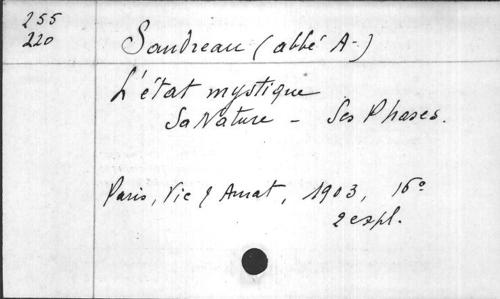 255
220
Saudreau (abbé A-)
L'état mystique
Sa Nature - Ses Phases.
Paris, Vic & Amat, 1903, 16°
2 expl.